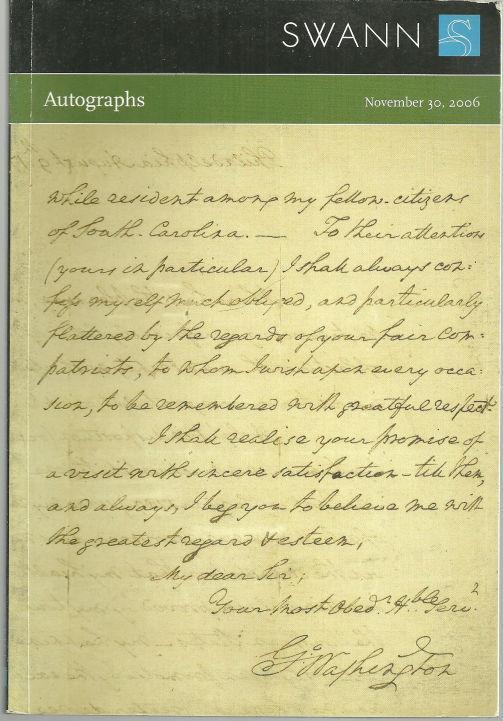 SWANN
Autographs
November 30, 2006
while resident among my fellow-citizens
of South-Carolina. — To their attentions
(yours in particular) I shall always con:
fess myself much obliged, and particularly
flattered by the regards of your fair com:
patriots, to whom I wish upon every occa:
sion, to be remembered with greatful respect.
I shall realise your promise of
a visit with sincere satisfaction – till then,
and always, I beg you to believe me with
the greatest regard & esteem,
My dear Sir,
Your Most Obed.t Hble Serv.t
G:o Washington